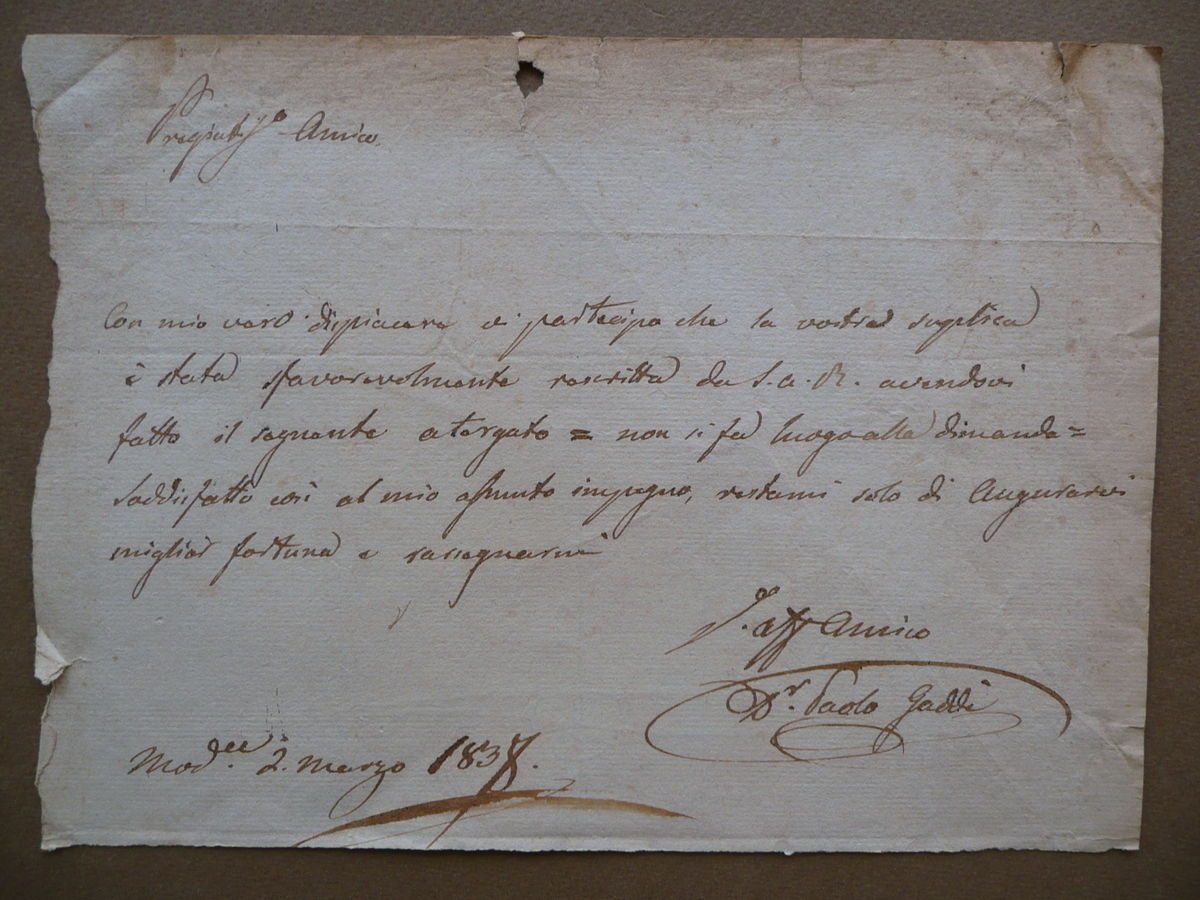 Pregiatis.º Amico,
Con mio vero dispiacere vi partecipo che la vostra suplica
è stata sfavorevolmente rescritta da S. A. R. avendovi
fatto il seguente atergato = non si fa luogo alla dimanda =
Soddisfatto così al mio assunto impegno, restami solo di augurarvi
miglior fortuna e rassegnarmi
aff.mo Amico
D.r Paolo Gaddi
Mod. 2. Marzo 1837.